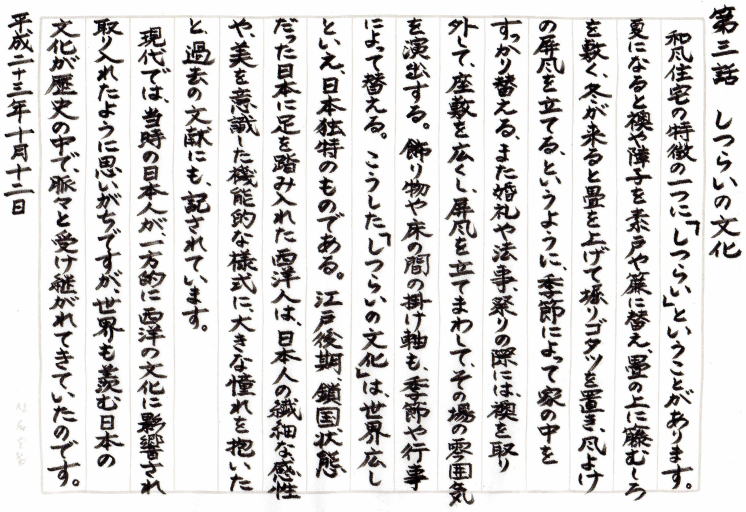 第三話　しつらいの文化
和風住宅の特徴の一つに「しつらい」ということがあります。
夏になると襖や障子を素戸や簾に替え、畳の上に籐むしろ
を敷く、冬が来ると畳を上げて堀りゴタツを置き、風よけ
の屏風を立てる、というように、季節によって家の中を
すっかり替える、また婚礼や法事、祭りの際には、襖を取り
外して、座敷を広くし、屏風を立てまわして、その場の雰囲気
を演出する。飾り物や床の間の掛け軸も、季節や行事
によって替える。こうした、「しつらいの文化」は、世界広し
といえ、日本独特のものである。江戸後期、鎖国状態
だった日本に足を踏み入れた西洋人は、日本人の繊細な感性
や、美を意識した機能的な様式に大きな憧れを抱いた
と、過去の文献にも、記されています。
現代では、当時の日本人が一方的に西洋の文化に影響され
取り入れたように思いがちですが、世界も羨む日本の
文化が歴史の中で、脈々と受け継がれてきていたのです。
平成二十三年十月十二日